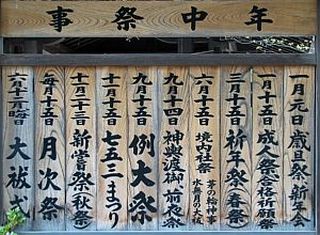 年中祭事
一月元日 歳旦祭 新年会
一月十五日 成人祭 合格祈願祭
三月十五日 祈年祭 春祭
六月十五日 境内社祭 茅の輪神事 水無月の大祓
九月十四日 神輿渡御 前夜祭
九月十五日 例大祭
十一月十五日 七五三まつり
十一月二十三日 新嘗祭 秋祭
毎月十五日 月次祭
六月十二月晦日 大祓式